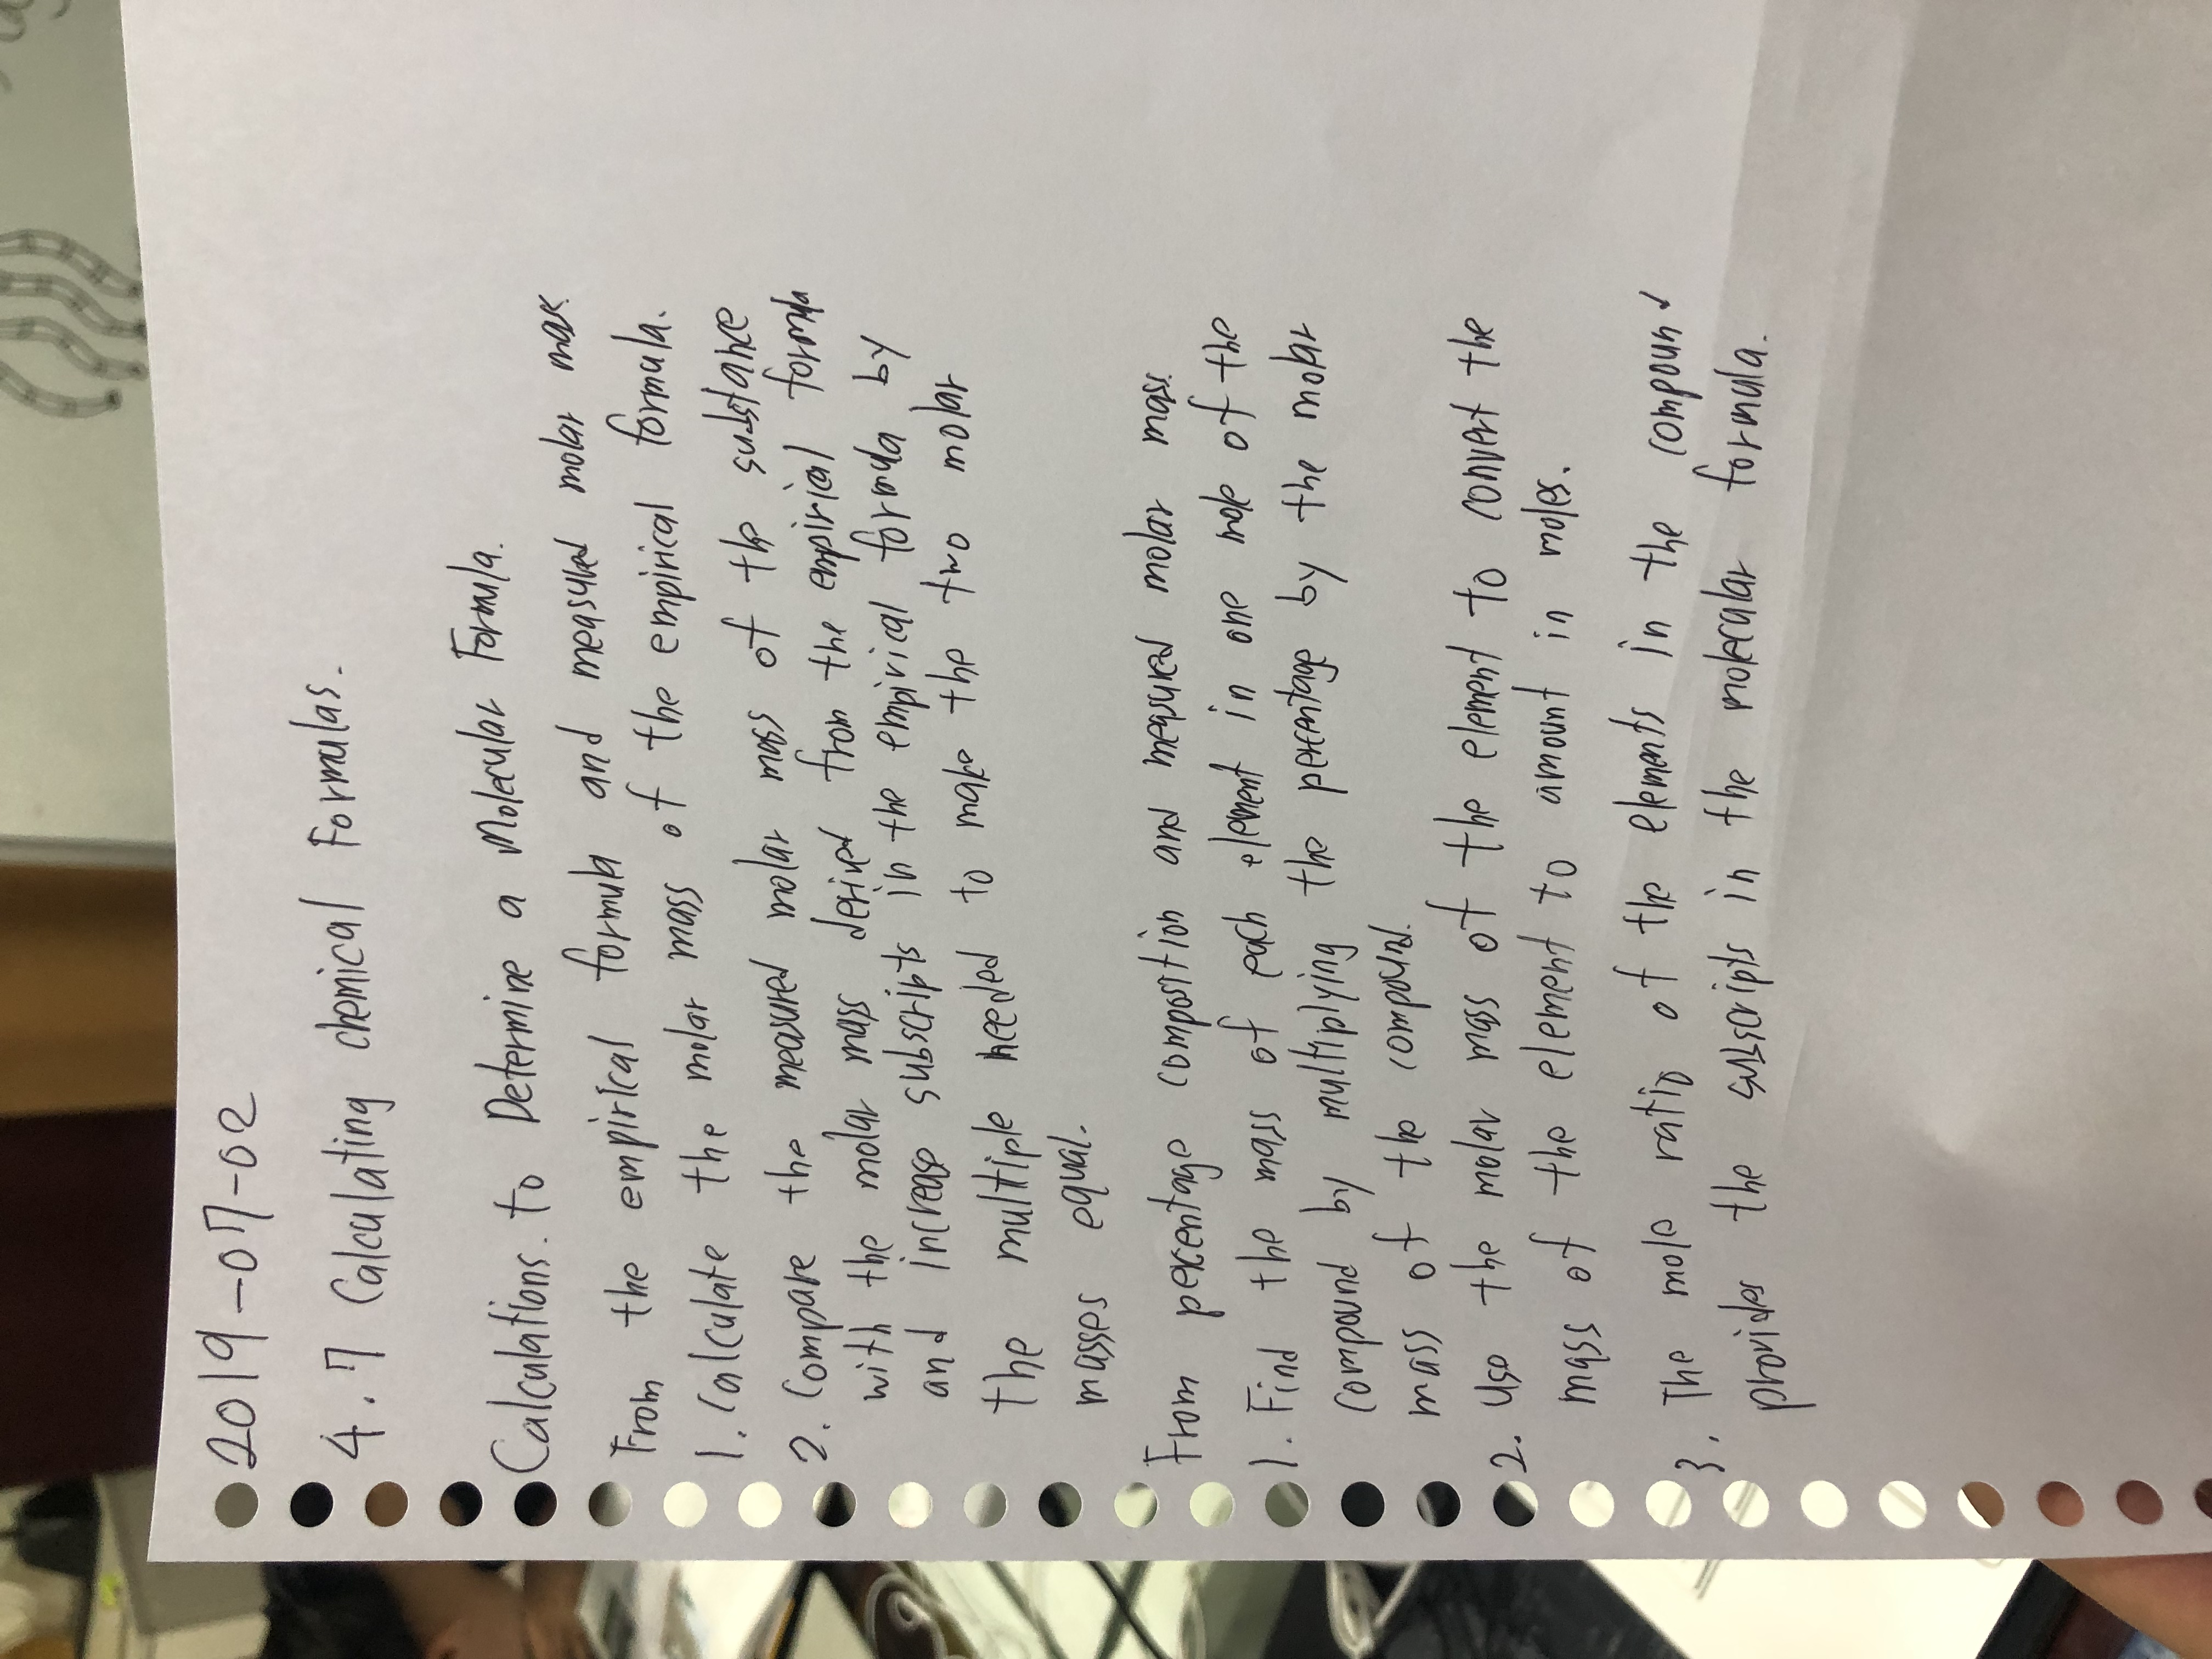 2019-07-02
4.7 Calculating chemical Formulas.
Calculations. to Determine a Molecular Formula.
From the empirical formula and measured molar mass
1. Calculate the molar mass of the empirical formula.
2. Compare the measured molar mass of the substance
with the molar mass derived from the empirical formula
and increase subscripts in the empirical formula by
the multiple needed to make the two molar
masses equal.
From percentage composition and measured molar mass.
1. Find the mass of each element in one mole of the
compound by multiplying the percentage by the molar
mass of the compound.
2. Use the molar mass of the element to convert the
mass of the element to amount in moles.
3. The mole ratio of the elements in the compound
provides the subscripts in the molecular formula.